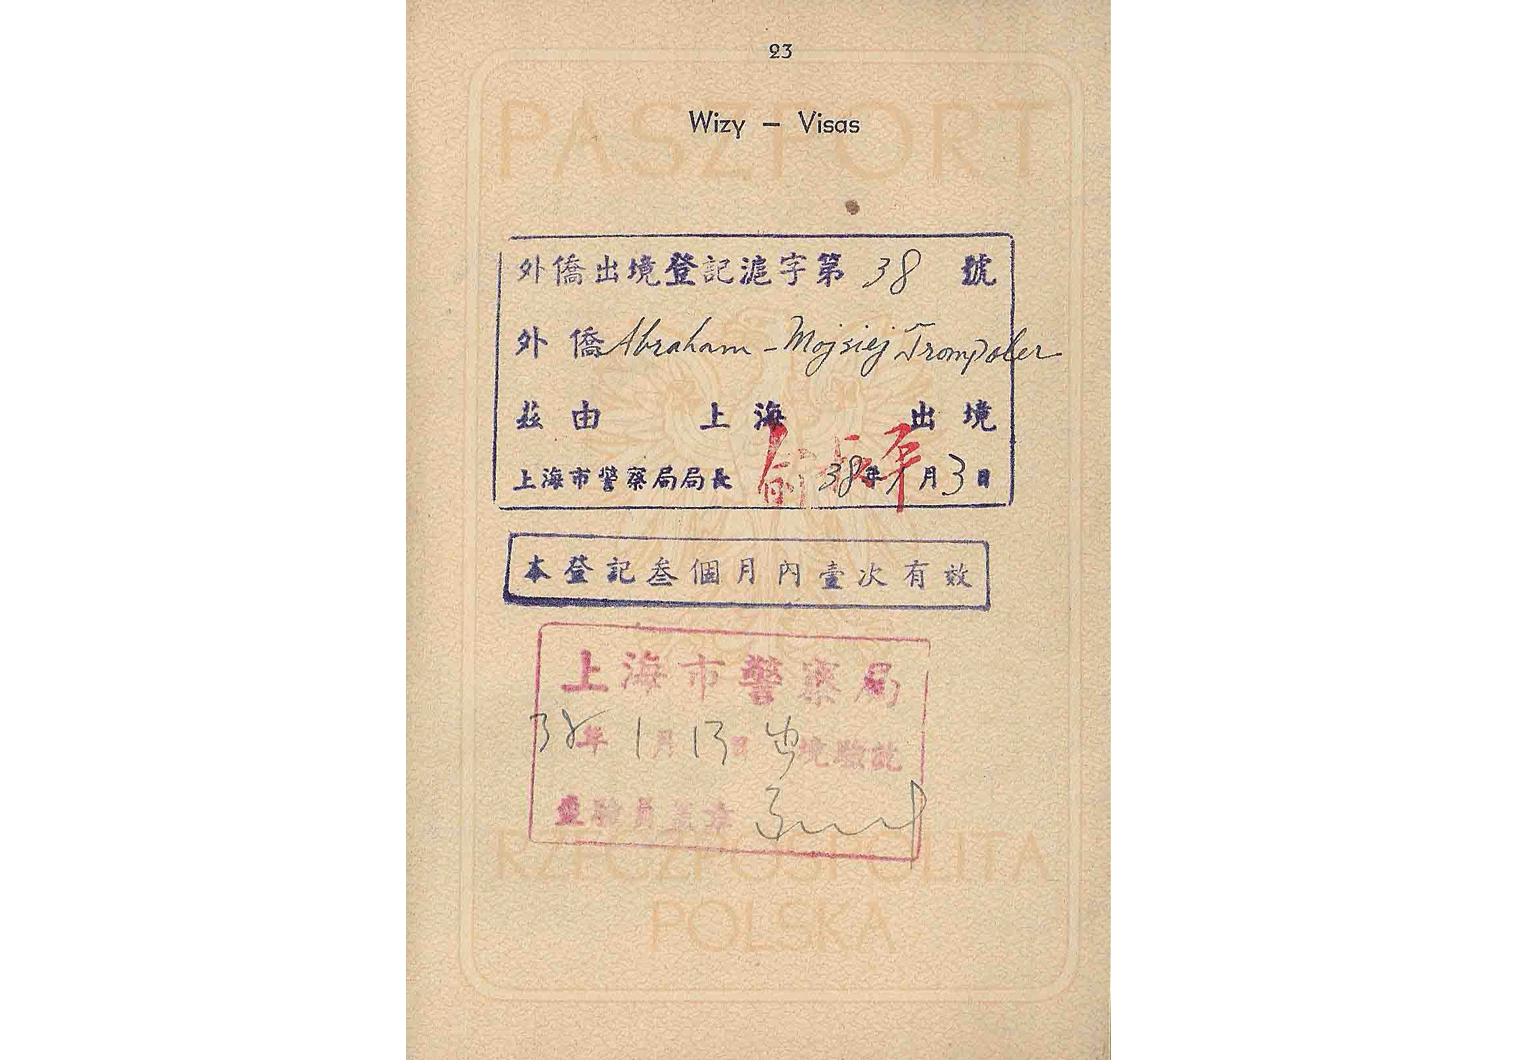 23
Wizy – Visas
PASZPORT
外僑出境登記滬字第 38 號
外僑 Abraham - Mojsiej Trompoler
茲由 上海 出境
上海市警察局局長 俞叔平 38年1月3日
本登記叁個月內壹次有效
上海市警察局
38年1月13日出境驗訖
查驗員蓋章
RZECZPOSPOLITA
POLSKA